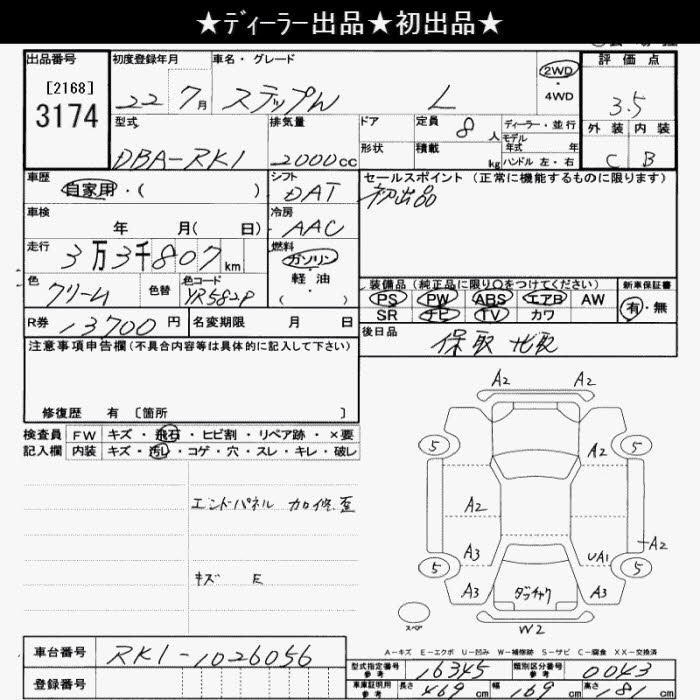 ★ディーラー出品★初出品★
出品番号 初度登録年月 車名・グレード 評価点
[2168] 22 7月 ステップW L 2WD ・ 4WD 3.5
3174
型式 排気量 ドア 定員 8人 ディーラー・並行 外装 内装
モデル年式 年
DBA-RK1 2000cc 形状 積載 kg ハンドル 左・右 C B
車歴 シフト セールスポイント(正常に機能するものに限ります)
自家用・( ) DAT 初出品
車検 冷房
年 月( 日) AAC
走行 燃料
3万3千807km ガソリン
軽・油
( ・ )
装備品(純正品に限り○をつけてください) 新車保証書
色 色替 色コード PS PW ABS エアB AW 有・無
クリーム YR582P SR ナビ TV カワ
R券 13700円 名変期限 月 日 後日品
保取 地取
注意事項申告欄(不具合内容等は具体的に記入して下さい)
修復歴 有 〔箇所 〕
検査員 FW キズ・飛石・ヒビ割・リペア跡・×要
記入欄 内装 キズ・汚れ・コゲ・穴・スレ・キレ・破レ
A2 A2
5 5
A2
エンドパネル 加修歪
A2
A2
A3 UA1
5 5
キズ E
A3 ダッチャク A3
スペア
W2
A-キズ E-エクボ U-凹み W-補修跡 S-サビ C-腐食 XX-交換済
車台番号 RK1-1026056
型式指定番号 参考 16345 類別区分番号 参考 0043
登録番号 車庫証明用 参考 長さ 469cm 幅 169cm 高さ 181cm